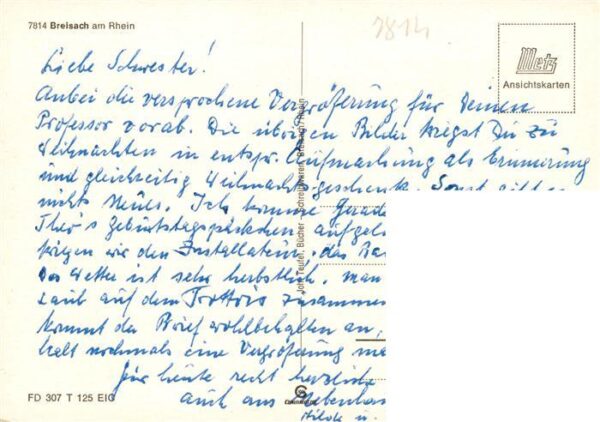 7814 Breisach am Rhein
7814
Metz
Ansichtskarten
Liebe Schwester!
Anbei die versprochene Vergrößerung für Deinen
Professor vorab. Die übrigen Bilder kriegst Du zu
Weihnachten in entspr. Aufmachung als Erinnerung
und gleichzeitig Weihnachtsgeschenk. Sonst gibt
nichts Neues. Ich komme gerade
Theo's Geburtstagspäckchen
kriegen wir den Installateur, das
Das Wetter ist sehr herbstlich, man
Laub auf dem Trottoir zusammen
kommt der Brief wohlbehalten an,
halt nochmals eine Vergrößerung
Für heute recht herzliche
auch aus
Hilde u.
Joh. Teufel, Bücher - Schreibwaren, Breisach/Rhein
FD 307 T 125 EIG